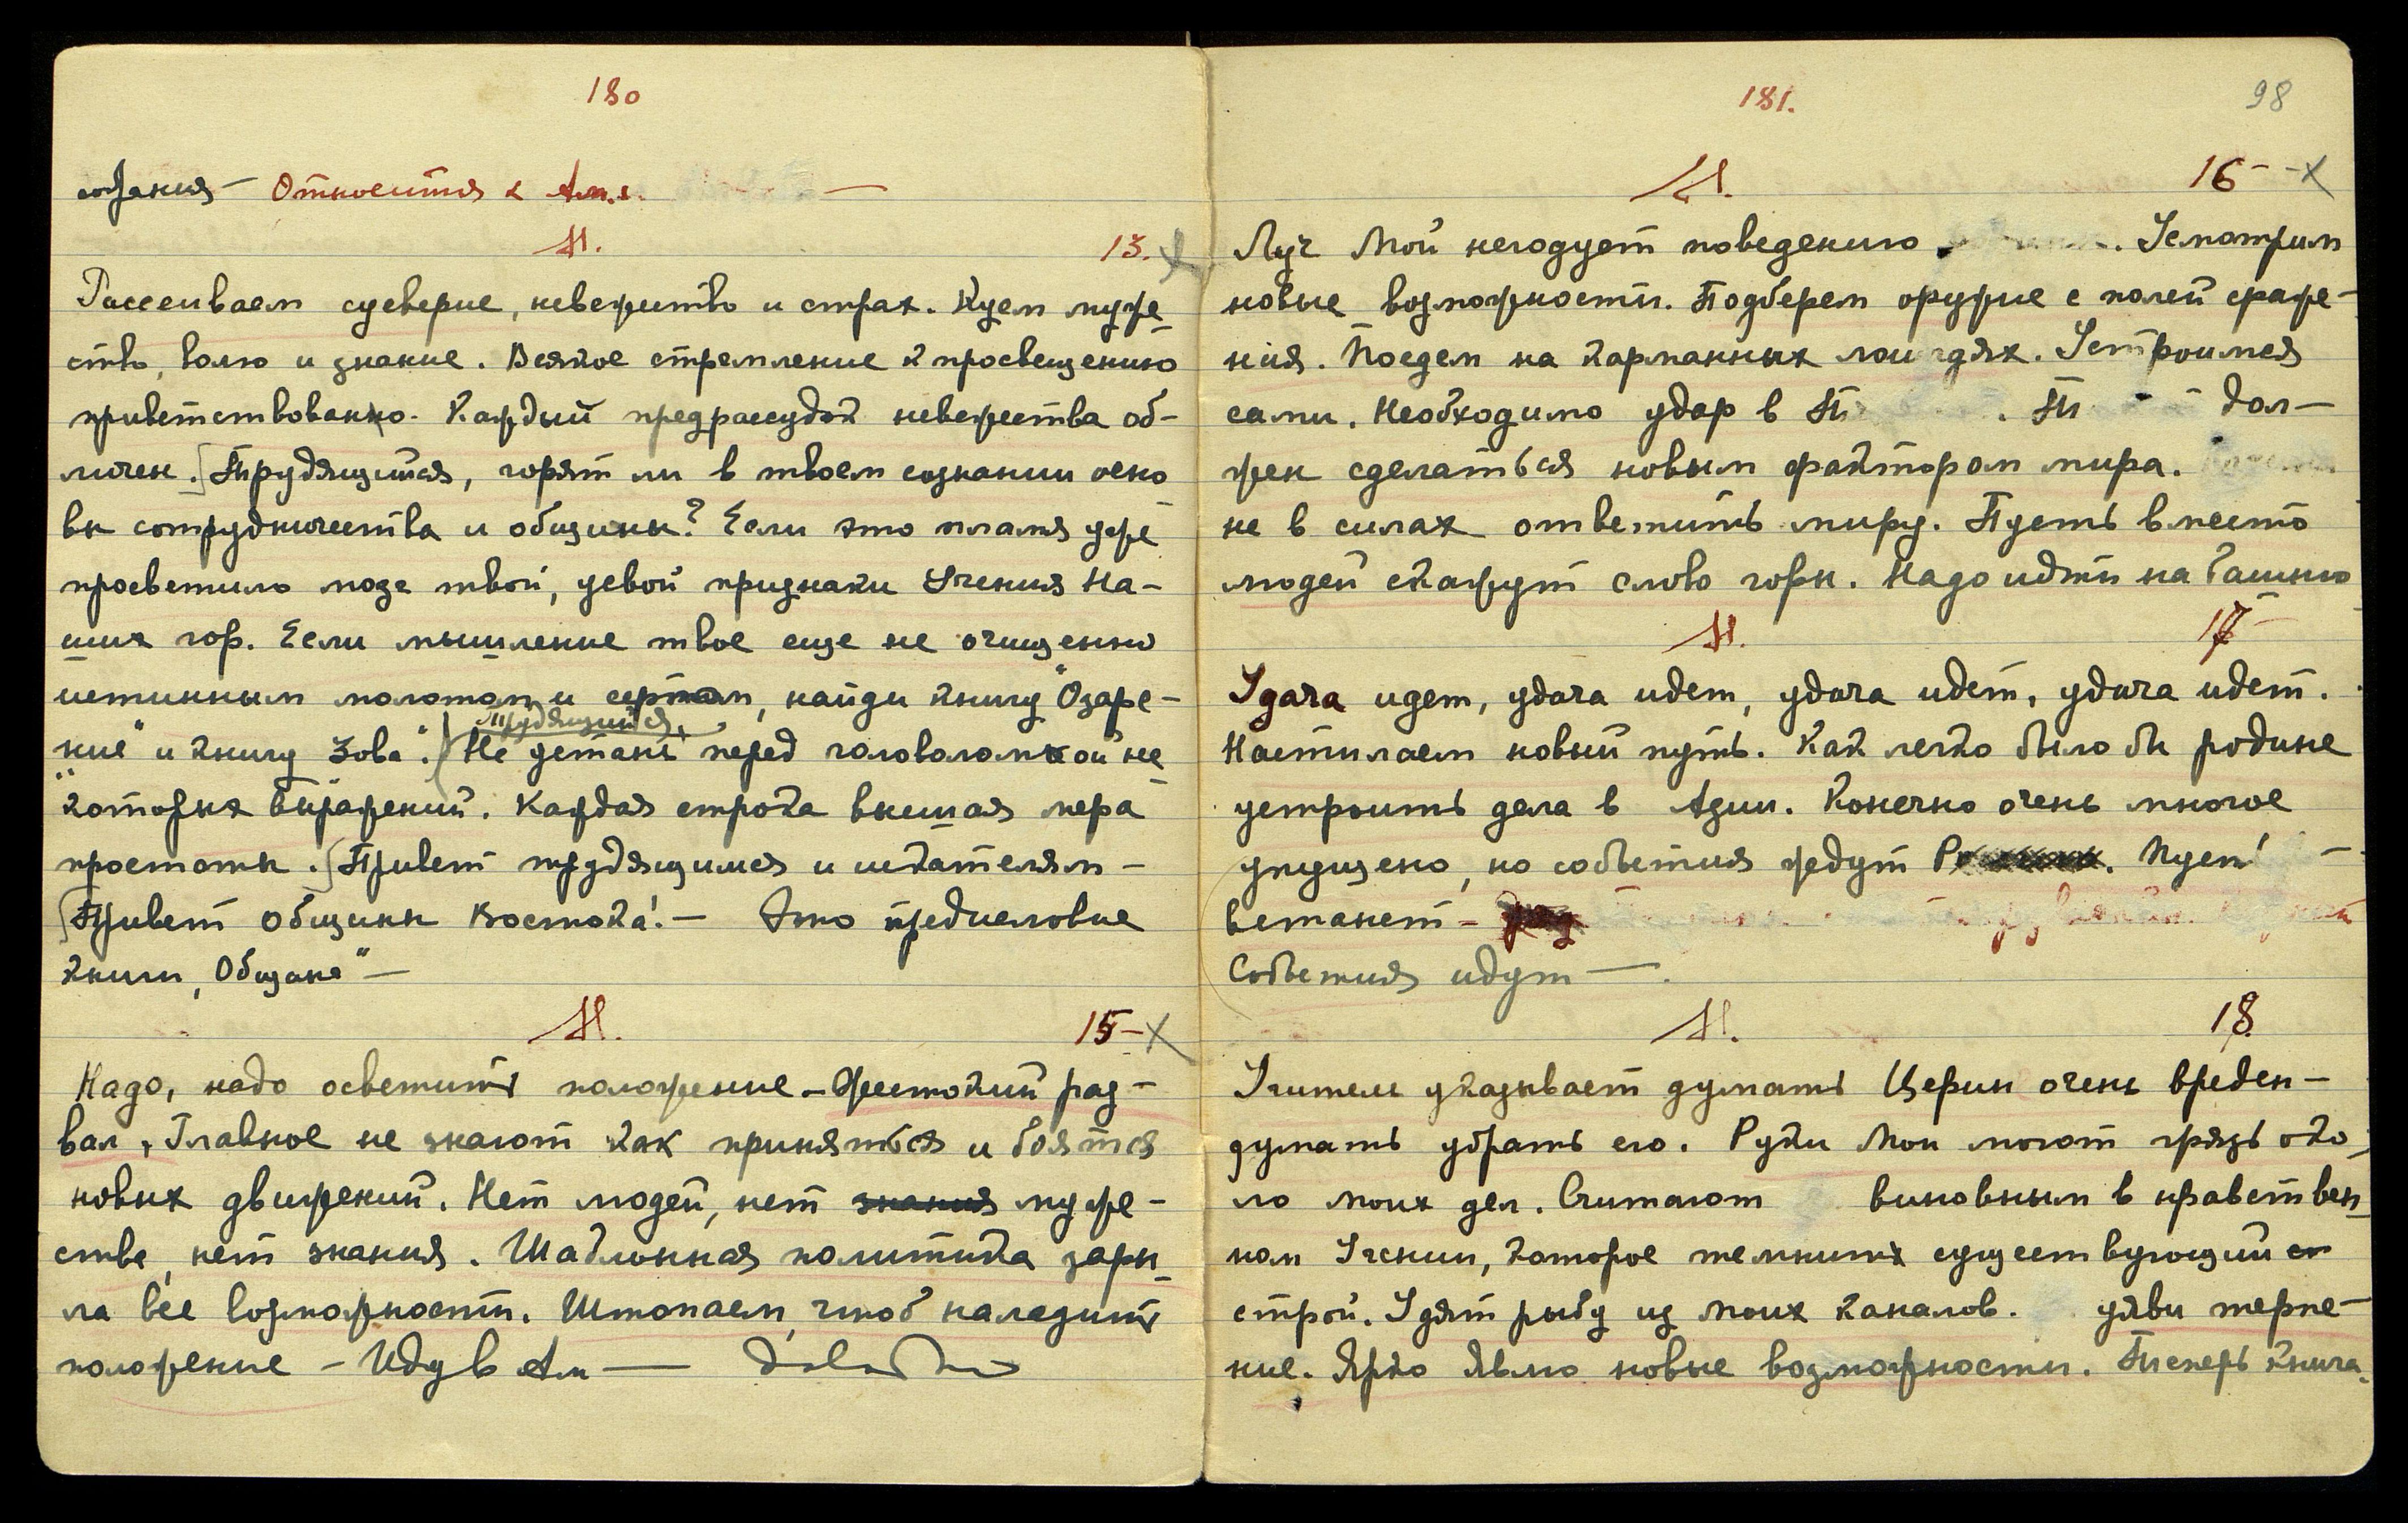 180
создания — Относится к Ам.
М.
13.
Рассеиваем суеверие, невежество и страх. Куем муже-
ство, волю и знание. Всякое стремление к просвещению
приветствовано. Каждый предрассудок невежества об-
личен. [Трудящийся, горят ли в твоем сознании осно
вы сотрудничества и общины? Если это пламя уже
просветило мозг твой, усвой признаки Учения На-
ших гор. Если мышление твое еще не очищенно
истинным молотом и серпом, найди книгу "Озаре-
ние" и книгу Зова".) Трудящийся,
Не устань перед головоломкой не
которых выражений. Каждая строка высшая мера
простоты. [Привет трудящимся и искателям —
[Привет общины Востока! — Это предисловие
книги „Община" —
М.
15 — х
Надо, надо осветить положение — Жестокий раз-
вал, Главное не знают как приняться и боятся
новых движений. Нет людей, нет знания муже-
ства, нет знания. Шаблонная политика зары-
ла все возможности. Штопаем, чтоб наладить
положение — Иду в Ам —
181.
98
М.
16 — х
Луч Мой негодует поведению. Усмотрим
новые возможности. Подберем оружие с полей сраже-
ния. Поедем на карманных лошадях. Устроимся
сами. Необходимо удар в Ти . Ти дол-
жен сделаться новым фактором мира.
не в силах ответить миру. Пусть вместо
людей скажут слово горы. Надо идти на башню
М.
17 —
Удача идет, удача идет, удача идет, удача идет.
Настилаем новый путь. Как легко было бы родине
устроить дела в Азии. Конечно очень многое
упущено, но события ждут Р. Пусть —
встанет —
События идут —.
М.
18
Учитель указывает думать Церин очень вреден —
думать убрать его. Руки Мои могот грязь око-
ло моих дел. Считают виновным в нравствен-
ном Учении, которое темнит существующий
строй. Удят рыбу из моих каналов. уяви терпе-
ние. Ярко являю новые возможности. Теперь книга